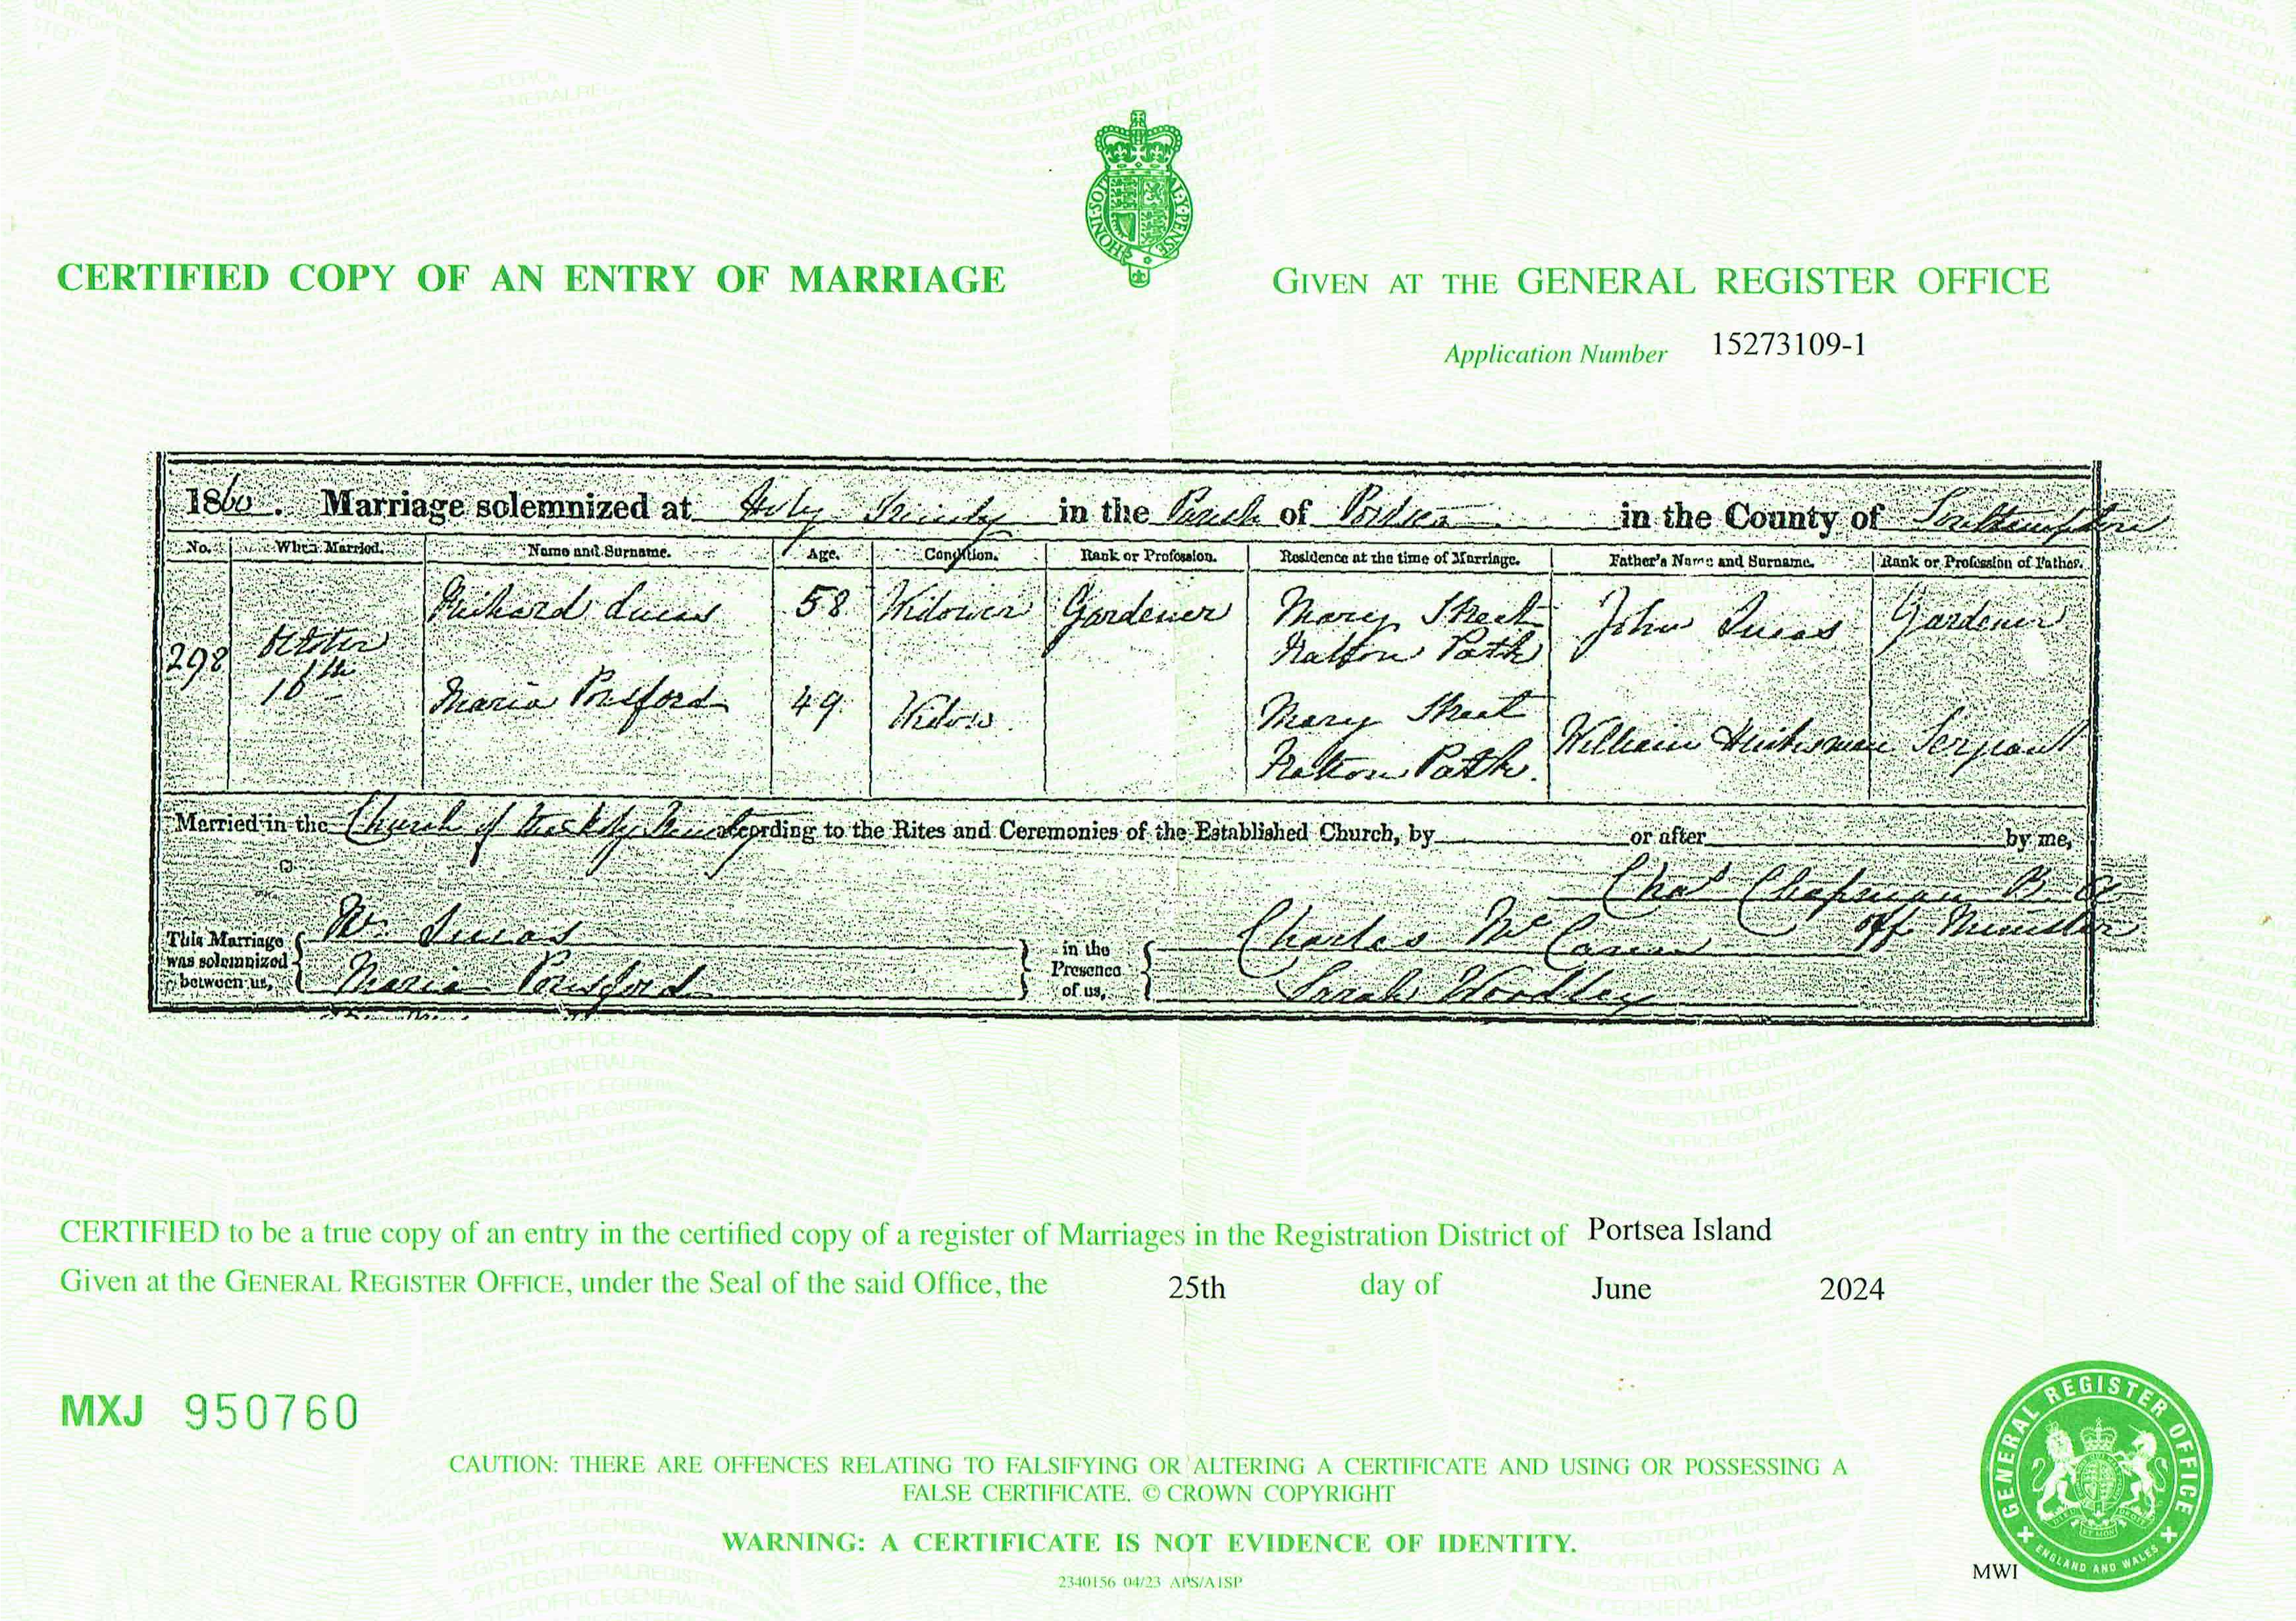 HONI·SOIT
AL·Y·PENSE
CERTIFIED COPY OF AN ENTRY OF MARRIAGE
GIVEN AT THE GENERAL REGISTER OFFICE
Application Number 15273109-1
1860. Marriage solemnized at Holy Trinity in the Parish of Portsea in the County of Southampton
No. When Married. Name and Surname. Age. Condition. Rank or Profession. Residence at the time of Marriage. Father's Name and Surname. Rank or Profession of Father.
298 October 16th Richard Lucas 58 Widower Gardener Mary Street Fratton Path John Lucas Gardener
Maria Ponsford 49 Widow Mary Street Fratton Path. William Sergeant
Married in the Church of the Holy Trinity according to the Rites and Ceremonies of the Established Church, by or after by me,
Chas Chapman B. A
Off. Minister
This Marriage was solemnized between us, Lucas
Maria Ponsford
in the Presence of us, Charles
Sarah Woodley
CERTIFIED to be a true copy of an entry in the certified copy of a register of Marriages in the Registration District of Portsea Island
Given at the GENERAL REGISTER OFFICE, under the Seal of the said Office, the 25th day of June 2024
MXJ 950760
CAUTION: THERE ARE OFFENCES RELATING TO FALSIFYING OR ALTERING A CERTIFICATE AND USING OR POSSESSING A
FALSE CERTIFICATE. © CROWN COPYRIGHT
WARNING: A CERTIFICATE IS NOT EVIDENCE OF IDENTITY.
2340156 04/23 APS/A1SP
GENERAL REGISTER OFFICE
ENGLAND AND WALES
MWI